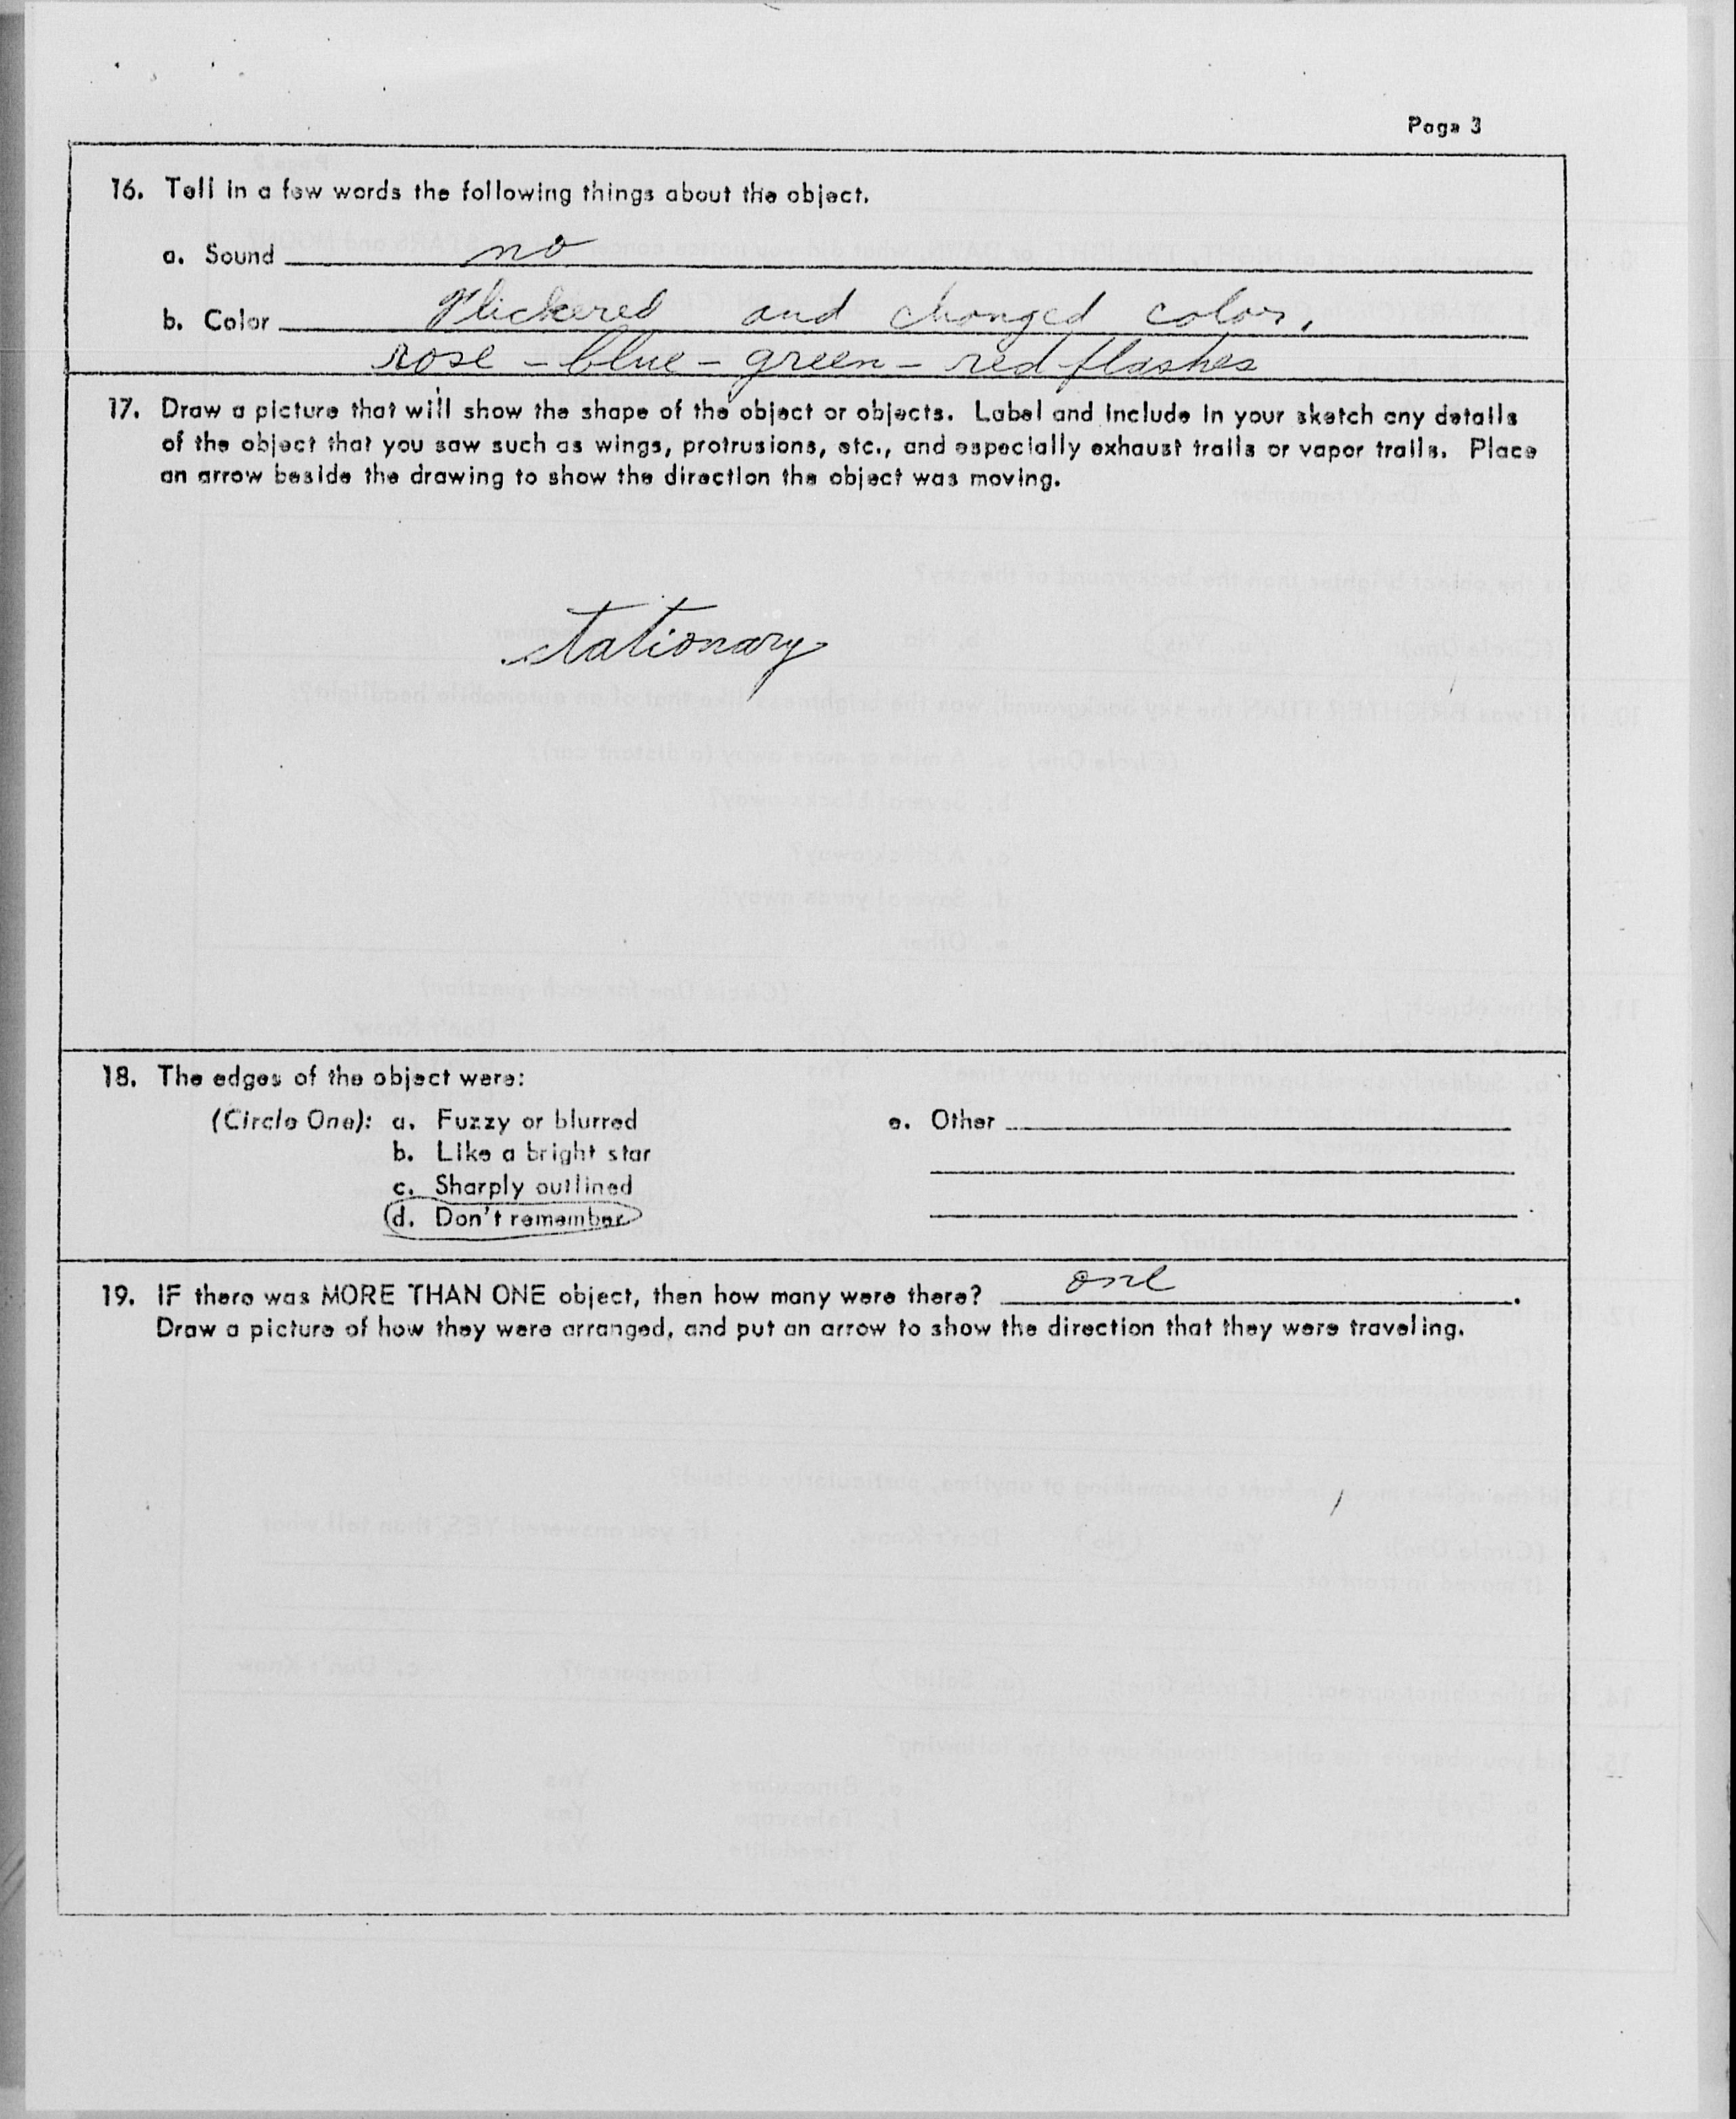 Page 3
16. Tell in a few words the following things about the object.
a. Sound no
b. Color Flickered and changed color,
rose - blue - green - red flashes
17. Draw a picture that will show the shape of the object or objects. Label and include in your sketch any details
of the object that you saw such as wings, protrusions, etc., and especially exhaust trails or vapor trails. Place
an arrow beside the drawing to show the direction the object was moving.
stationary
18. The edges of the object were:
(Circle One): a. Fuzzy or blurred e. Other
b. Like a bright star
c. Sharply outlined
d. Don't remember
19. IF there was MORE THAN ONE object, then how many were there? one.
Draw a picture of how they were arranged, and put an arrow to show the direction that they were traveling.